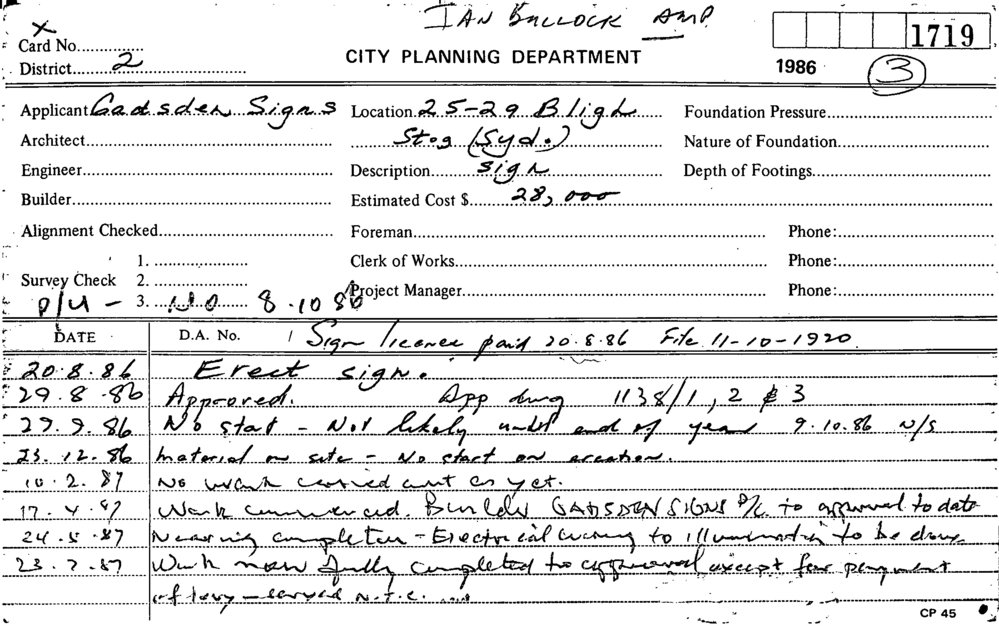 IAN BULLOCK AMP
X
Card No............... 1719
District 2
CITY PLANNING DEPARTMENT
1986 3
Applicant Gadsden Signs Location 25-29 Bligh Foundation Pressure
Architect Stog (Syd.) Nature of Foundation
Engineer Description Sign Depth of Footings
Builder Estimated Cost $ 28,000
Alignment Checked Foreman Phone:
1. Clerk of Works Phone:
Survey Check 2.
P/U - 3. NO 8.10 86 Project Manager Phone:
DATE D.A. No. / Sign licence paid 20.8.86 File 11-10-1920
20.8.86 Erect sign.
29.8.86 Approved. App dwg 1138/1, 2 & 3
29.9.86 No start - Not likely until end of year 9.10.86 N/S
23.12.86 Material on site - No start on erection.
10.2.87 No work carried out as yet.
17.4.87 Work commenced. Builder GADSDEN SIGNS P/L to approval to date
24.5.87 Nearing completion - Electrical wiring to illumination to be done
23.7.87 Work now fully completed to approval except for payment
of levy - served N.T.C.
CP 45